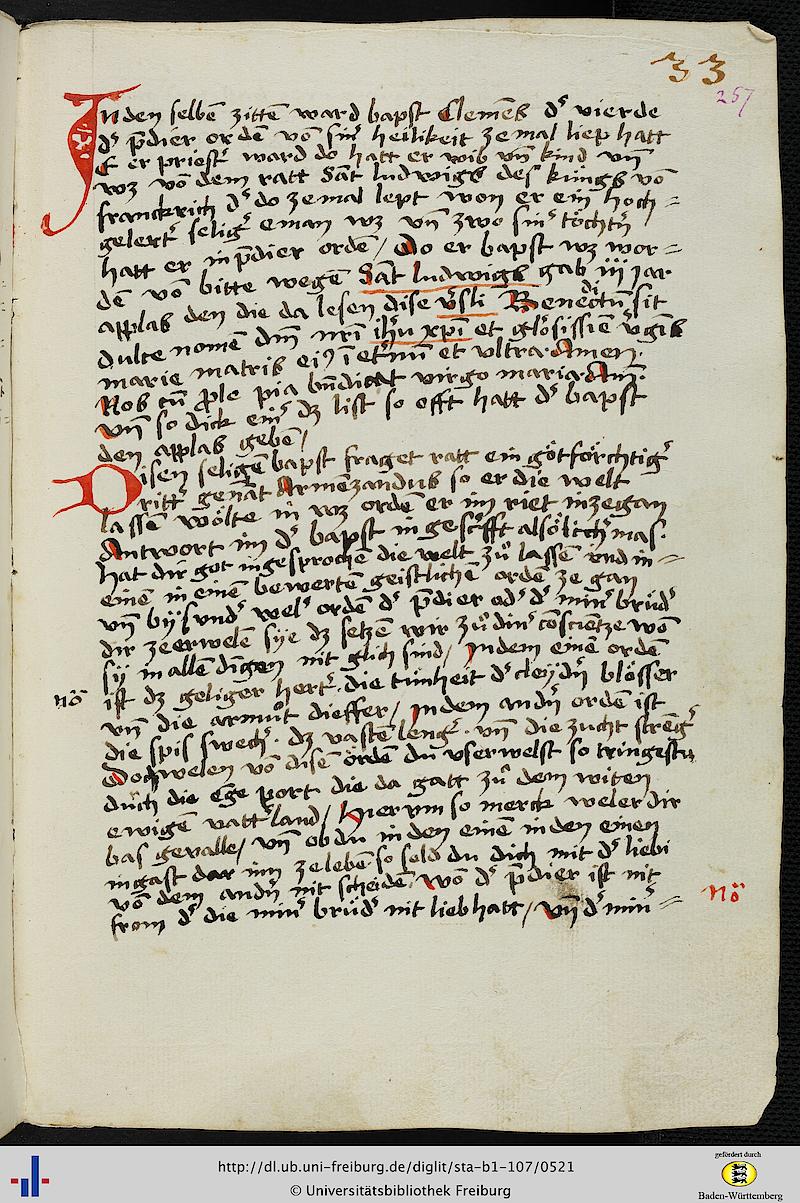 33
257
Jn den selbē zittē ward bapst Clemēs dˢ vierde
dˢ p̄dier ordē vō sinˢ heilikeit ze mal liep hatt
E er priestˢ ward do hatt er wib vn̄ kind vn̄
wz vō dem ratt Sāt ludwigs des kūngs vō
franckrich dˢ do ze mal lept won er ein hoch =
gelertˢ seligˢ eman wz vn̄ zwo sinˢ töchtˢn
hatt er in p̄dier ordē / Do er bapst wz wor =
dē vō bitte wegē Sāt ludwigs gab iij jar
applas den die da lesen dise vˢsli Benedictū sit
dulce nomē dn̄i nr̄i ih̄u xp̄i et glōsissiē vˢgīs
marie matris eiꝰ ī etˢnū et vltra. Amen.
Nos cū ꝓle pia bn̄dicat virgo maria. Am̄.
vn̄ so dick einˢ dz list so offt hatt dˢ bapst
den applas gebē /
Disen seligē bapst fraget ratt ein götförchtigˢ
rittˢ genāt Armēzandus so er die welt
lassē wölte in wz ordē er im riet in ze gan
Antwort im dˢ bapst in gescˢfft alsölichˢ mas.
hat dir got ingesprochē die welt zů lassē vnd in =
einē in einen bewertē geistlichē ordē ze gan
vn̄ bysundˢ welˢ ordē dˢ p̄dier odˢ dˢ minˢ brůdˢ
dir ze erwelē sye dz setzē wir zů dinˢ cōscientze wō
sy in allē dīgen nit glich sind / Jn dem einē ordē
nō
ist dz geliger hertˢ. die tūnheit dˢ cleydˢn blösser
vn̄ die armůt dieffer / Jn dem andˢn ordē ist
die spis swechˢ. dz vastē lengˢ. vn̄ die zucht strēgˢ
Doch welen vō disē ördē du vserwelst so tringestu
durch die ēge port die da gatt zů dem witen
ewigē vattˢland / Hier vm so merck weler dir
bas gevalle / vn̄ ob du in den einē in den einen
ingast dar inn ze lebē so sold du dich mit dˢ liebi
vō dem andˢn nit scheidē. wō dˢ p̄dier ist nit
Nō
from dˢ die minˢ brůdˢ nit lieb hatt / vn̄ dˢ minˢ =
http://dl.ub.uni-freiburg.de/diglit/sta-b1-107/0521
© Universitätsbibliothek Freiburg
gefördert durch
Baden-Württemberg